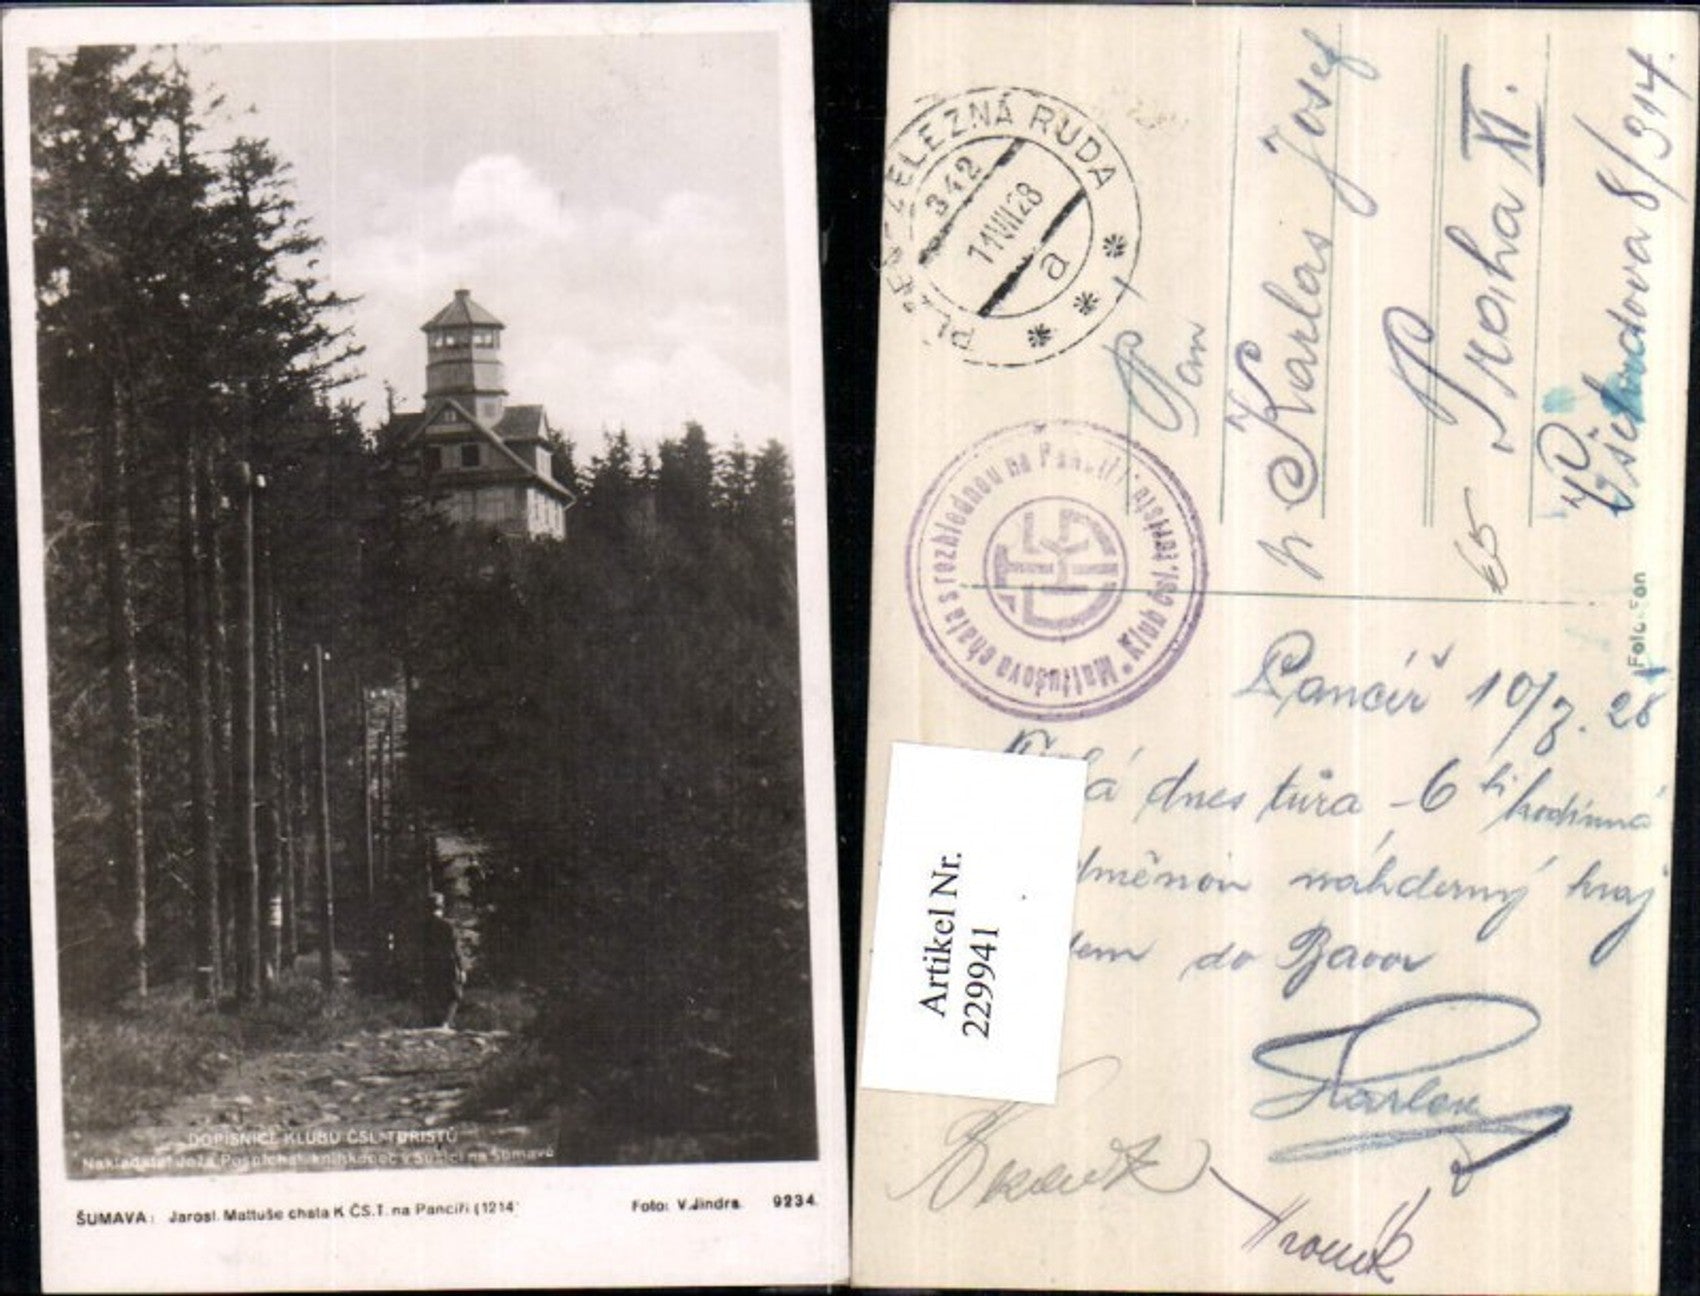 DOPISNICE KLUBU ČSL. TURISTŮ
Nakladatel Joža Pospíchal, knihkupec v Sušici na Šumavě
ŠUMAVA: Jarosl. Mattuše chata K ČS.T. na Pancíři (1214
Foto: V. Jindra. 9234.
ŽELEZNÁ RUDA
342
11.VII.28
a
Mattušova chata s rozhlednou na Pancíři
Klub čsl. turistů
Pan
Karlas Josef
Praha XI.
Všehrdova 8/314.
65
Fotofon
Pancíř 10/7. 28
dnes túra 6 ti hodinná
odměnou nádherný kraj
do Bavor
Artikel Nr.
229941